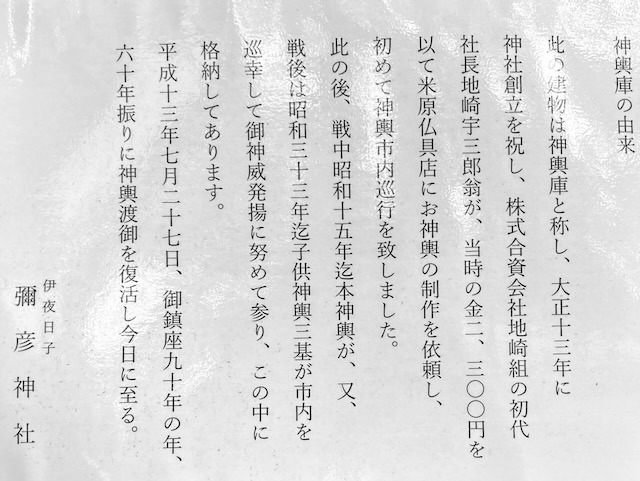 神輿庫の由来
此の建物は神輿庫と称し、大正十三年に
神社創立を祝し、株式合資会社地崎組の初代
社長地崎宇三郎翁が、当時の金二、三〇〇円を
以て米原仏具店にお神輿の制作を依頼し、
初めて神輿市内巡行を致しました。
此の後、戦中昭和十五年迄本神輿が、又、
戦後は昭和三十三年迄子供神輿三基が市内を
巡幸して御神威発揚に努めて参り、この中に
格納してあります。
平成十三年七月二十七日、御鎮座九十年の年、
六十年振りに神輿渡御を復活し今日に至る。
伊夜日子
彌彦神社